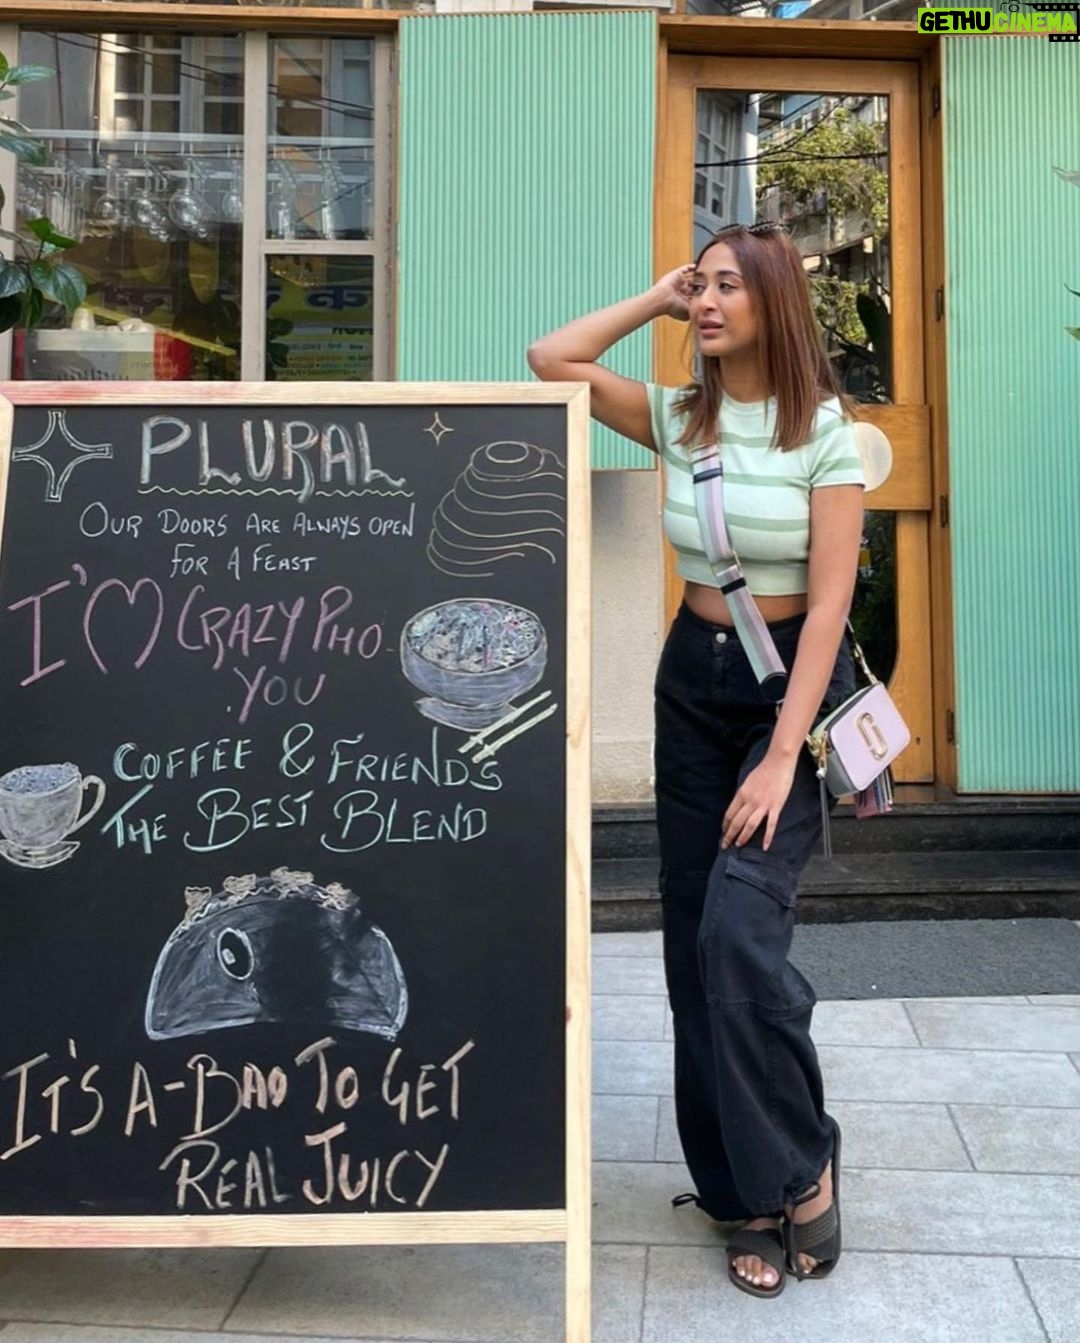 GETHU CINEMA
PLURAL
OUR DOORS ARE ALWAYS OPEN
FOR A FEAST
I'M CRAZY PHO
YOU
COFFEE & FRIENDS
THE BEST BLEND
IT'S A-BAO TO GET
REAL JUICY